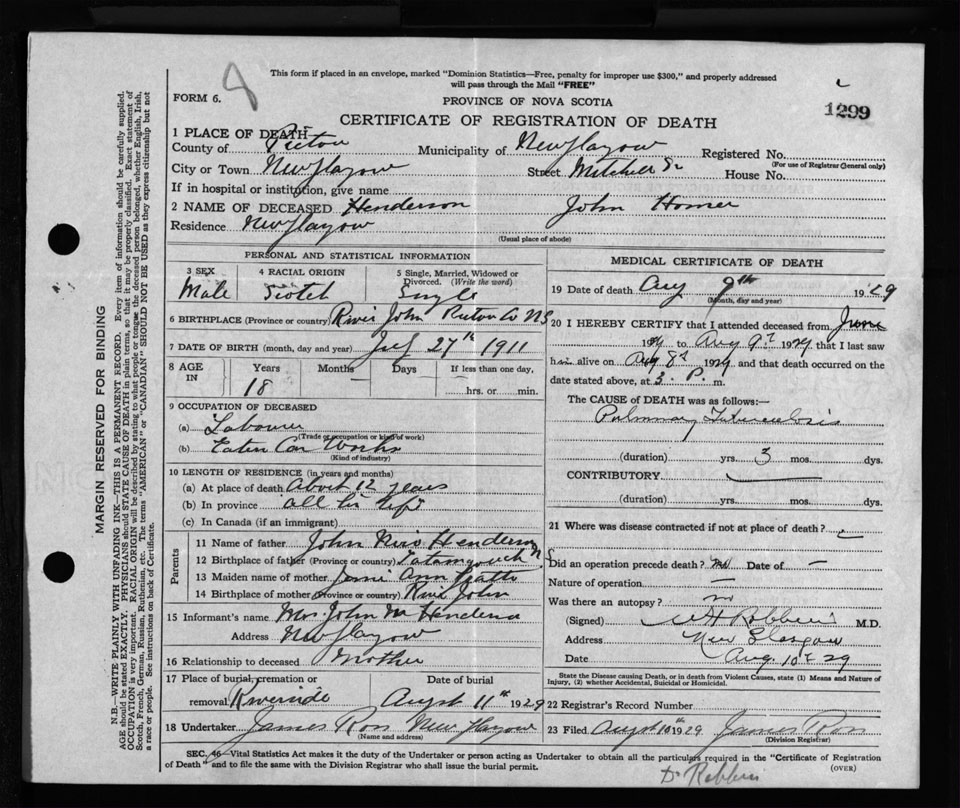 This form if placed in an envelope, marked "Dominion Statistics—Free, penalty for improper use $300," and properly addressed
will pass through the Mail "FREE"
FORM 6.
8
PROVINCE OF NOVA SCOTIA
1299
CERTIFICATE OF REGISTRATION OF DEATH
1 PLACE OF DEATH
County of Pictou Municipality of New Glasgow Registered No.
(For use of Registrar General only)
City or Town New Glasgow Street Mitchell St House No.
If in hospital or institution, give name
2 NAME OF DECEASED Henderson John Homer
Residence New Glasgow
(Usual place of abode)
PERSONAL AND STATISTICAL INFORMATION
3 SEX 4 RACIAL ORIGIN 5 Single, Married, Widowed or Divorced. (Write the word)
Male Scotch Single
6 BIRTHPLACE (Province or country) River John Pictou Co NS
7 DATE OF BIRTH (month, day and year) 27th 1911
8 AGE IN Years Months Days If less than one day,
18 hrs. or min.
9 OCCUPATION OF DECEASED
(a) Labourer
(Trade or occupation or kind of work)
(b) Eastern Car Works
(Kind of industry)
10 LENGTH OF RESIDENCE (in years and months)
(a) At place of death About 12 years
(b) In province all his life
(c) In Canada (if an immigrant)
Parents
11 Name of father John Henderson
12 Birthplace of father (Province or country) Tatamagouche N S
13 Maiden name of mother Ann
14 Birthplace of mother (Province or country) River John
15 Informant's name Mrs John Henderson
Address New Glasgow
16 Relationship to deceased Mother
17 Place of burial, cremation or Date of burial
removal Riverside August 11th 1929
18 Undertaker James Ross New Glasgow
(Name and address)
MEDICAL CERTIFICATE OF DEATH
19 Date of death Aug 9th 1929
(Month, day and year)
20 I HEREBY CERTIFY that I attended deceased from June
1929 to Aug 9th 1929 that I last saw
him alive on Aug 8th 1929 and that death occurred on
date stated above, at 3 P. m.
The CAUSE of DEATH was as follows:—
Pulmonary Tuberculosis
(duration) yrs. 3 mos. dys.
CONTRIBUTORY
(duration) yrs. mos. dys.
21 Where was disease contracted if not at place of death?
Did an operation precede death? no Date of —
Nature of operation —
Was there an autopsy? no
(Signed) Robbins M.D.
Address New Glasgow
Date Aug. 10th 29
State the Disease causing Death, or in death from Violent Causes, state (1) Means and Nature of
Injury, (2) whether Accidental, Suicidal or Homicidal.
22 Registrar's Record Number
23 Filed August 10th 1929 James Ross
(Division Registrar)
SEC. 46—Vital Statistics Act makes it the duty of the Undertaker or person acting as Undertaker to obtain all the particulars required in the "Certificate of Registration
of Death" and to file the same with the Division Registrar who shall issue the burial permit. (OVER)
Dr Robbins
MARGIN RESERVED FOR BINDING
N.B.—WRITE PLAINLY WITH UNFADING INK—THIS IS A PERMANENT RECORD. Every item of information should be carefully supplied.
AGE should be stated EXACTLY. PHYSICIANS should STATE CAUSE OF DEATH in plain terms, so that it may be properly classified. Exact statement of
OCCUPATION is very important. RACIAL ORIGIN will be described by stating to what people or tongue the deceased person belonged, whether English, Irish,
Scotch, French, German, Russian, Ruthenian, etc. The terms "AMERICAN" or "CANADIAN" SHOULD NOT BE USED as they express citizenship but not
a race or people. See instructions on back of Certificate.